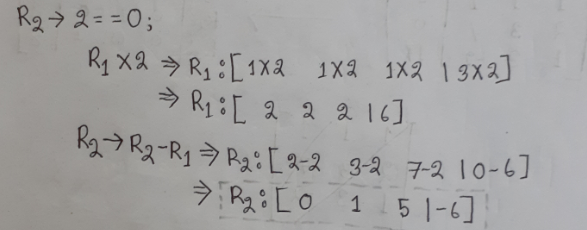 R₂ → 2 = = 0;
R₁ × 2 ⇒ R₁ : [ 1×2 1×2 1×2 | 3×2 ]
⇒ R₁ : [ 2 2 2 | 6 ]
R₂ → R₂ - R₁ ⇒ R₂ : [ 2-2 3-2 7-2 | 0-6 ]
⇒ R₂ : [ 0 1 5 | -6 ]